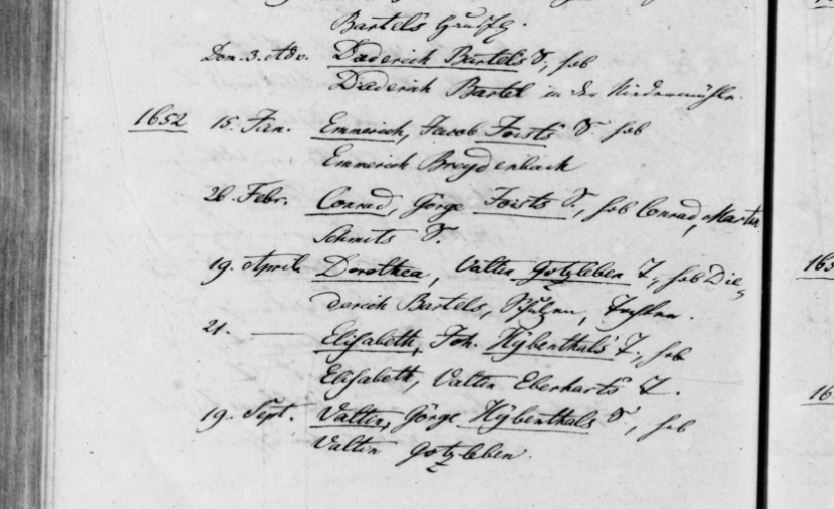 Bartels
Dom. 3. Adv. Diderich Bartels S., hub
Diederich Bartel in der Niedermühle.
1652 15. Jan. Emmerich, Jacob Forsts S. hub
Emmerich Breydenbach
26. Febr. Conrad, Görge Forsts S., hub Conrad, Martin
Schmits S.
19. April Dorothea, Valtin Gotzleben T., hub Die-
derich Bartels,
21. — Elisabeth, Joh. Hÿbenthals T., hub
Elisabeth, Valtin Eberharts T.
19. Sept. Valtin, Görge Hÿbenthals S., hub
Valtin Gotzleben.
165
16